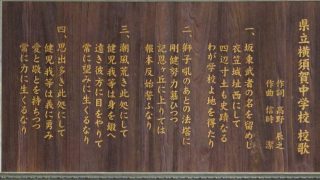 県立横須賀中学校 校歌
作詞 高野 辰之
作曲 信時 潔
一、坂東武者の名を留めし
衣笠城址西にして
四辺寸土も史蹟なる
わが学校よ地を得たり
二、獅子吼のあとの法塔に
剛健努力慕ひつつ
記恩ヶ丘に上りては
報本反始誓ふなり
三、潮風荒き此処にして
健児我等は身を鍛へ
遠き彼方に目をやりて
常に望みに生くるなり
四、思出多き此処にして
健児我等は義に勇み
愛と敬とを持ちつつ
常に力に生くるなり